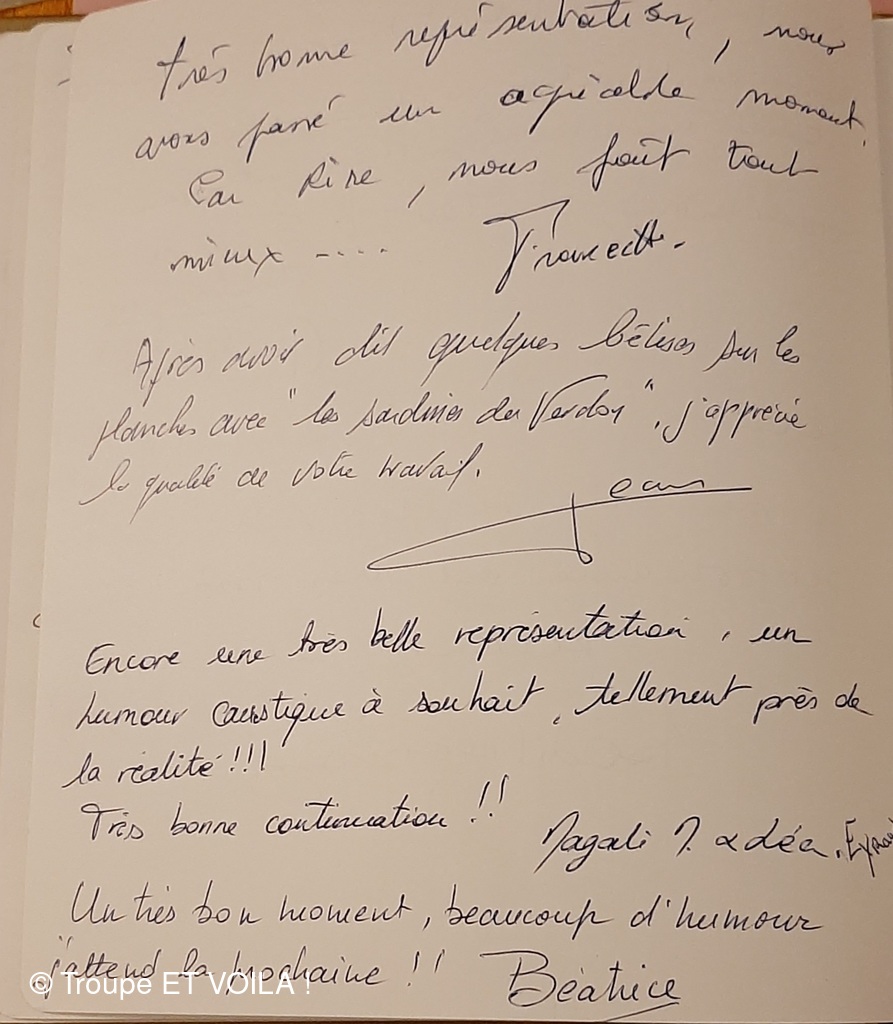 très bonne représentation, nous
avons passé un agréable moment.
Car Rire, nous fait tout
mieux ----
Après avoir dit quelques bêtises sur les
planches avec "les sardines du Verdon", j'apprécie
la qualité de votre travail.
Jean
Encore une très belle représentation, un
humour caustique à souhait, tellement près de
la réalité !!!
Très bonne continuation !!
Magali
Un très bon moment, beaucoup d'humour
j'attend la prochaine !! Béatrice
© Troupe ET VOILA !